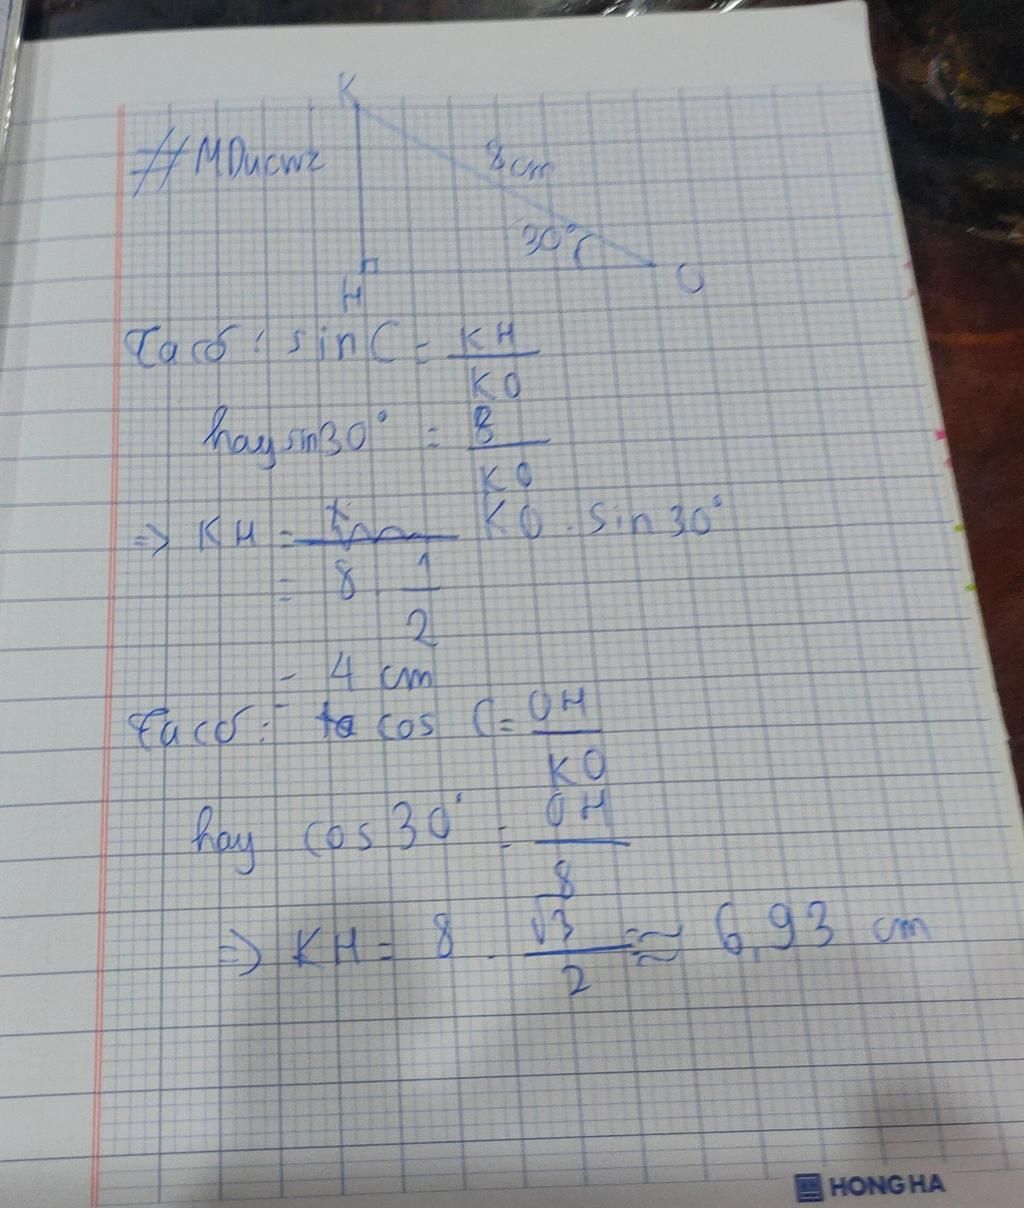 K
#MDucwz
8cm
30°
H
O
Ta có: sin C = KH / KO
hay sin30° = 8 / KO
=> KH = KO . sin 30°
= 8 1 / 2
= 4 cm
Ta có: ta cos C = OH / KO
hay cos 30° = OH / 8
=> KH = 8 . √3 / 2 ≈ 6,93 cm
HONG HA